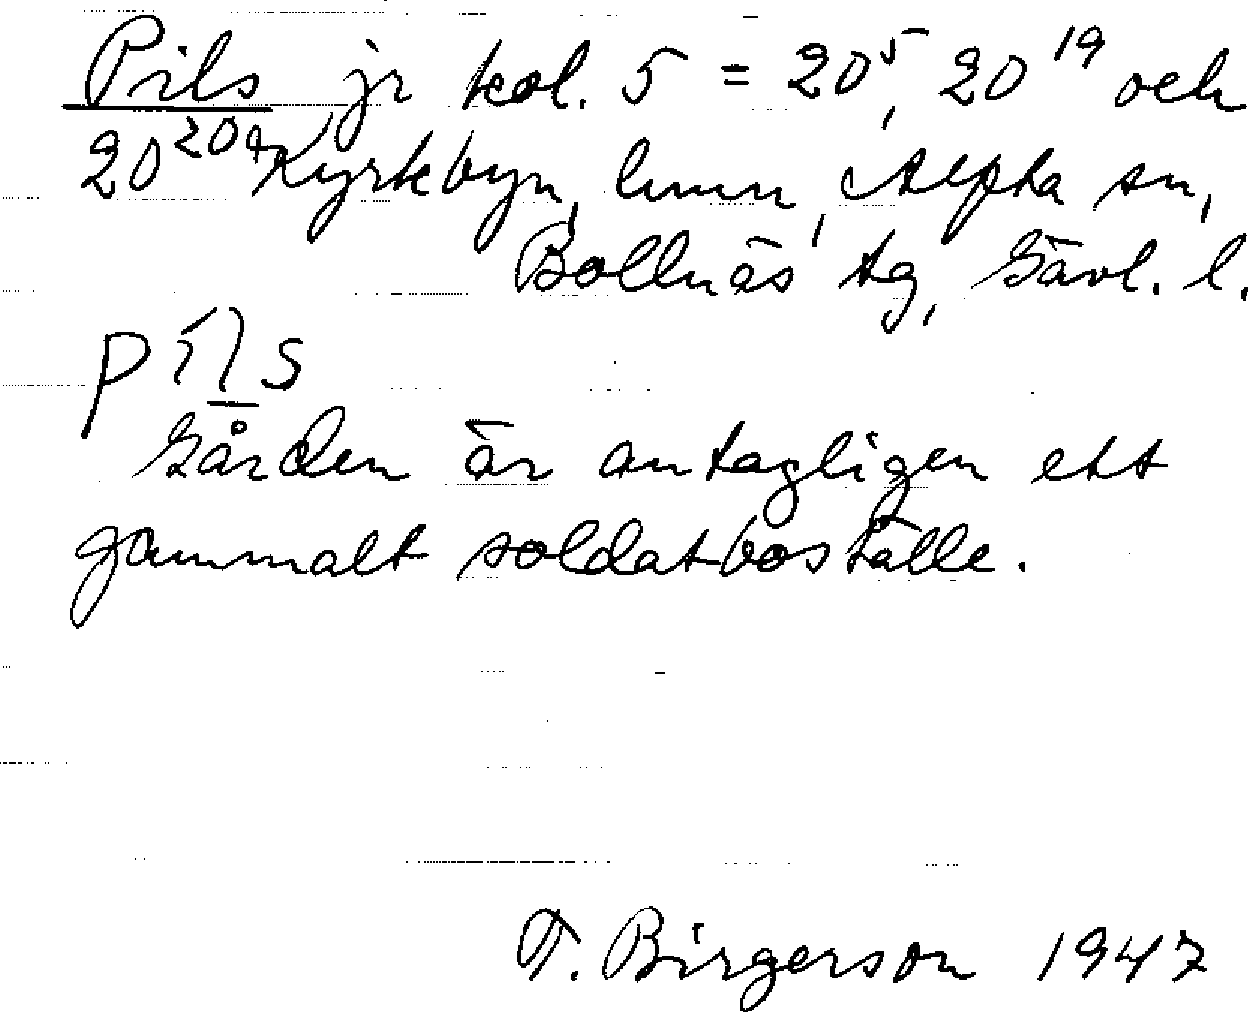 Pils jr kol. 5 = 20⁵, 20¹⁹ och
20²⁰ Kyrkbyn, hmn, Alfta sn,
Bollnäs tg, Gävl. l.
Gården är antagligen ett
gammalt soldatboställe.
T. Birgerson 1947